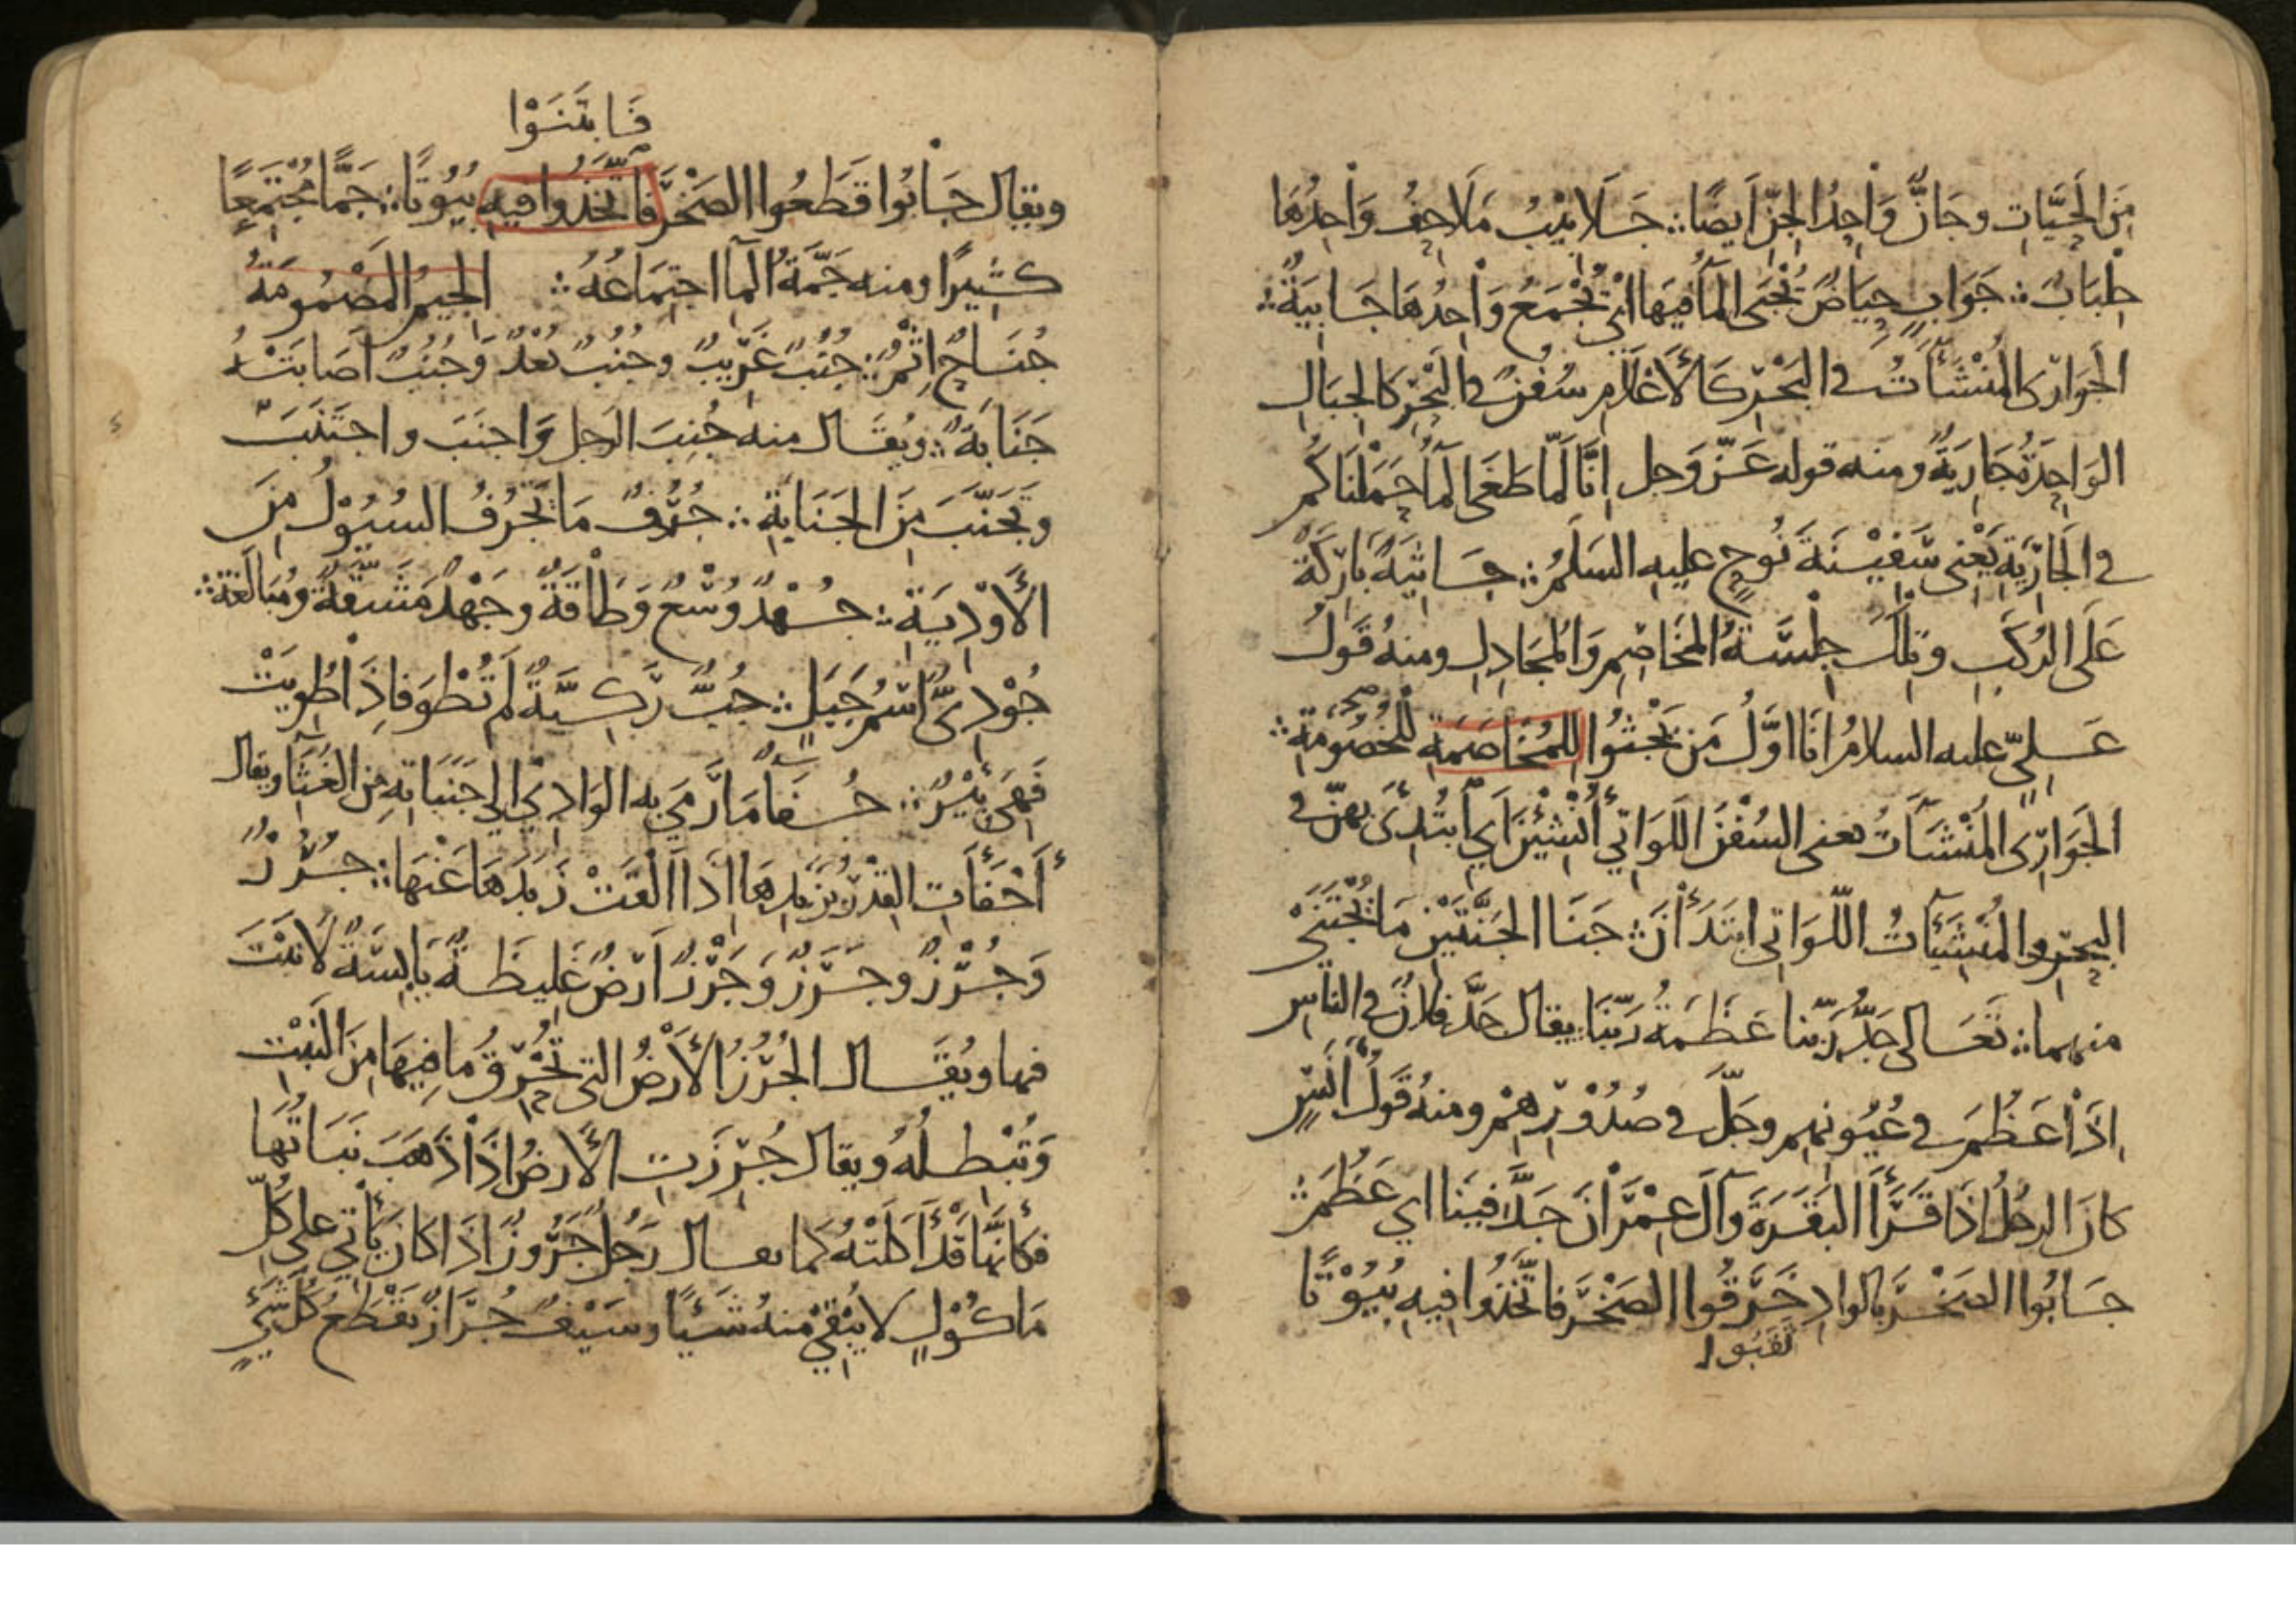 مِنَ الحَيَّاتِ وجَانٌّ وَاحِدُ الجِنِّ اَيضًا ∴ جَلَابِيْبُ مَلَاحِفُ وَاحِدُهَا
جِلْبَابٌ ∴ جَوَابٍ حِيَاضٌ يُجْبَى المَآ فِيهَا اَيْ يُجْمَعُ وَاحِدُهَا جَابِيَةٌ ∴
الجَوَارِى المُنْشَـَٔاتُ فى البَحْرِ كَالأَعْلَامِ سُفُنٌ فى البَحْرِ كَالجِبَالِ
الوَاحِدَةُ جَارِيَةٌ ومنه قوله عَزَّ وَجل اِنَّا لَمَّا طَغَى المَآ حَمَلْنَاكُمْ
فى الجَارِيَةِ يَعْنِى سَفِيْنَةَ نُوحٍ عليه السَلَمُ ∴ جَاثِيَةً بَارِكَةً
عَلَى الرُكَبِ وتِلْكَ جِلْسَةُ المُخَاصِمِ وَالمُجَادِلِ ومنهُ قَولُ
عَلِيٍّ عليه السلامُ اَنَا اوَّلُ مَن يَجْثُوا للمُخَاصَمَةِ لِلْخُصُومَةِ ∴
الجَوَارِى المُنْشَآتُ يعنى السُفْنَ اللَوَاتِي أُنْشِئْنَ اَي اُبْتُدِئَ بِهِنَّ فى
البَحْرِ والمُنْشِـَٔاتُ اللَّوَاتى ابتَدَأْنَ ∴ جَنَا الجَنَّتَيْنِ مَا يُجْتَنَى
منهما ∴ تَعَالى جَدُّ رَبِّنا عَظَمَةُ رَبِّنَا يقال جَدَّ فلانٌ فى الناسِ
اِذَا عَظُمَ فى عُيُونِهِم وجَلَّ فى صُدُوْرِهِمْ ومنهُ قَولُ أَنَسٍ
كانَ الرجُلُ اِذَا قَرَأَ البَقَرَةَ وَآلَ عِمْرَانَ جَدَّ فِينَا اي عَظُمَ ∴
جَابُوا الصَخْرَ بالوادِ خَرَقُوا الصَخْرَ فاتَّخَذُوا فِيهِ بُيُوْتًا
نَقَبُوا
فَابتَنَوْا
ويقال جَابُوا قَطَعُوا الصَخْرَ فاتَّخَذُوا فيه بُيُوتًا ∴ جَمًّا مُجْتَمِعًا
كثِيرًا ومنه جَمَّةُ المآ اجتِمَاعُهُ ∴ الجِيمُ المَضْمُومَةُ
جُنَاحٌ اِثْمٌ ∴ جُنُبٌ غَرِيبٌ وجُنُبٌ بُعْدٌ وَجُنُبٌ اَصَابَتْهُ
جَنَابَةٌ ∴ ويُقَال منه جُنِبَ الرجل وَاجنَبَ واجتَنَبَ
وتَجَنَّبَ مِنَ الجَنَابَةِ ∴ جُرُفٌ مَا تَجْرُفُ السُيُوْلُ مِنَ
الأَوْدِيَةِ ∴ جُهْدٌ وُسْعٌ وَطَاقَةٌ وجَهْدٌ مَشَقَّةٌ ومُبَالَغَةٌ ∴
جُوْدِىٌّ اسْمُ جَبَلٍ ∴ جُبٌّ رَكِيَّةٌ لَم تُطْوَ فاِذَا طُوِيَتْ
فَهِىَ بِئْرٌ ∴ جُفَآءً مَا رَمَي به الوَادِي اِلى جَنَبَاتِهِ مِن الغُثَآ ويقال
أَجْفَأَتِ القِدْرُ بِزَبَدِهَا اِذَا اَلْقَتْ زَبَدَهَا عَنْهَا ∴ جُرُزٌ
وَجُرْزٌ وجَرَزٌ وَجَرْزٌ اَرضٌ غَلِيظَةٌ يَابِسَةٌ لَا نَبْتَ
فيها ويُقَال الجُرُزُ الأَرضُ التى تُحْرِقُ ما فِيهَا مِنَ النَبْتِ
وَتُبْطِلُهُ ويقال جُرِزَتِ الأَرضُ اِذَا ذَهَبَ نَبَاتُهَا
فكأَنَّها قَدْ أَكَلَتْهُ كما يقال رَجُلٌ جَرُوزٌ اِذَا كَانَ يَأْتي على كُلِّ
مَاكُوْلٍ لا يُبْقِيْ منهُ شَيْئًا وسَيْفٌ جُرَازٌ يَقْطَعُ كُلَّ شَيْءٍ